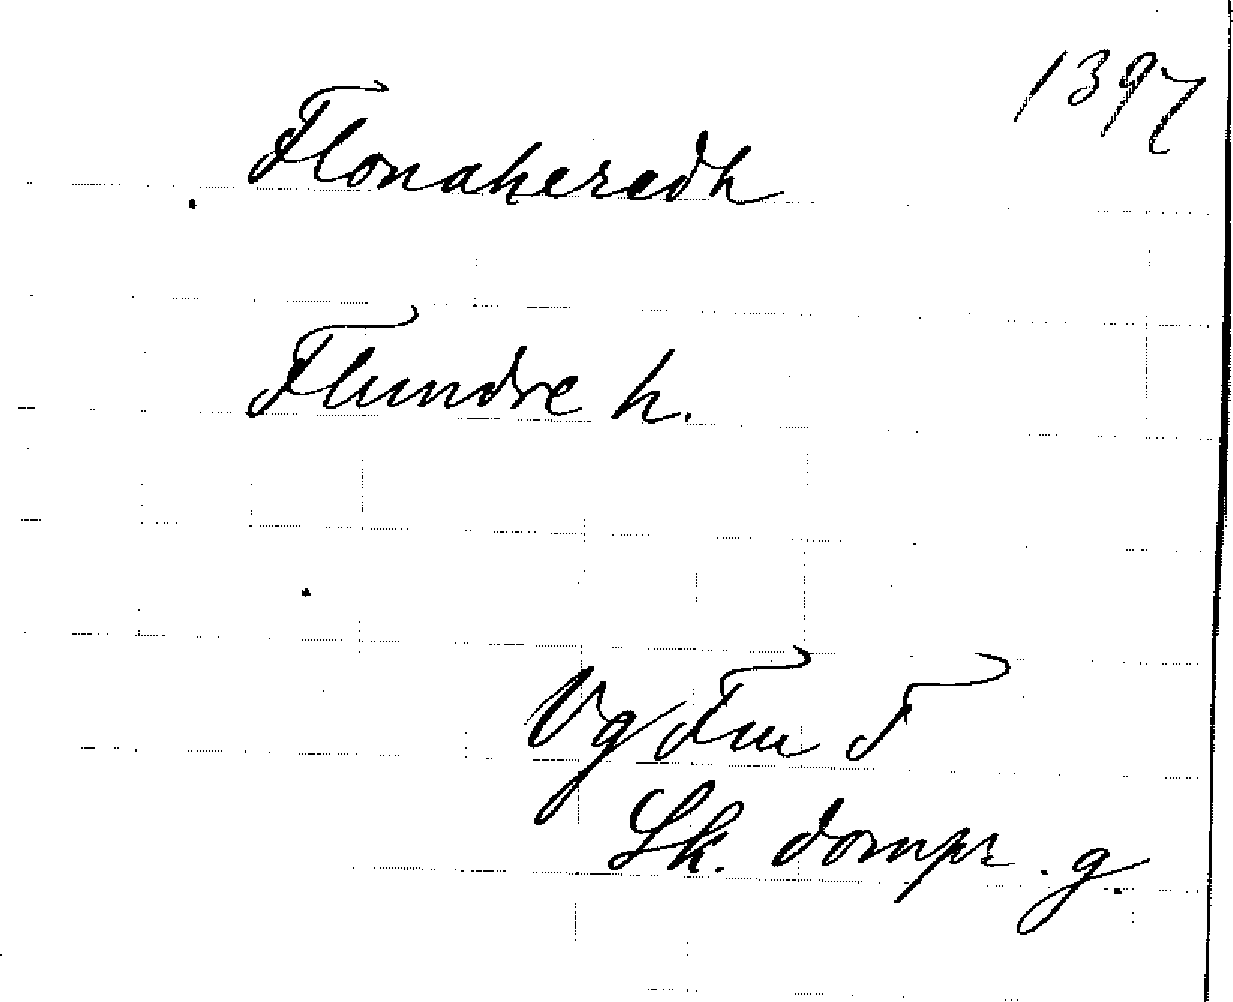 1397
Flonaheredh
Flundre h.
Vg Fu F
Sk. dompr. g.